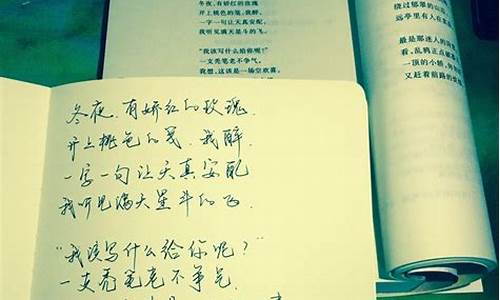 冬夜,有娇红的玫瑰
开上桃色的笺,我醉,
一字一句让天真安配
我听见满天星斗的飞。
“我该写什么给你呢?”
一支秃笔老不争气,
我想,这该是一场空欢喜。
绕过郁翠的山
远亭里有人在
最是那迷人的
看,乱鸦正点
一顶的小轿,
又赶着前路的
冬夜,有娇红的玫瑰
开上桃色的笺,我醉,
一字一句让天真安配
我听见满天星斗的飞
“我该写什么给你呢?”
一支秃笔老不争气,